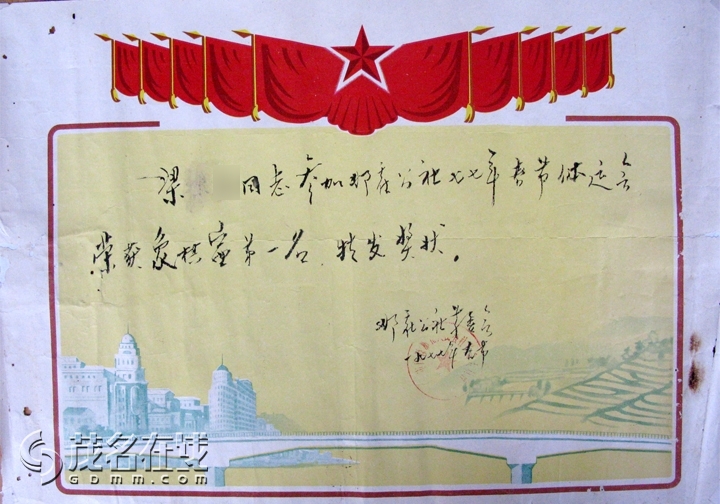 梁 同志参加那霍公社七七年春节体运会
荣获象棋赛第一名.特发奖状。
那霍公社革委会
一九七七年春节
茂名在线
GDMM.COM